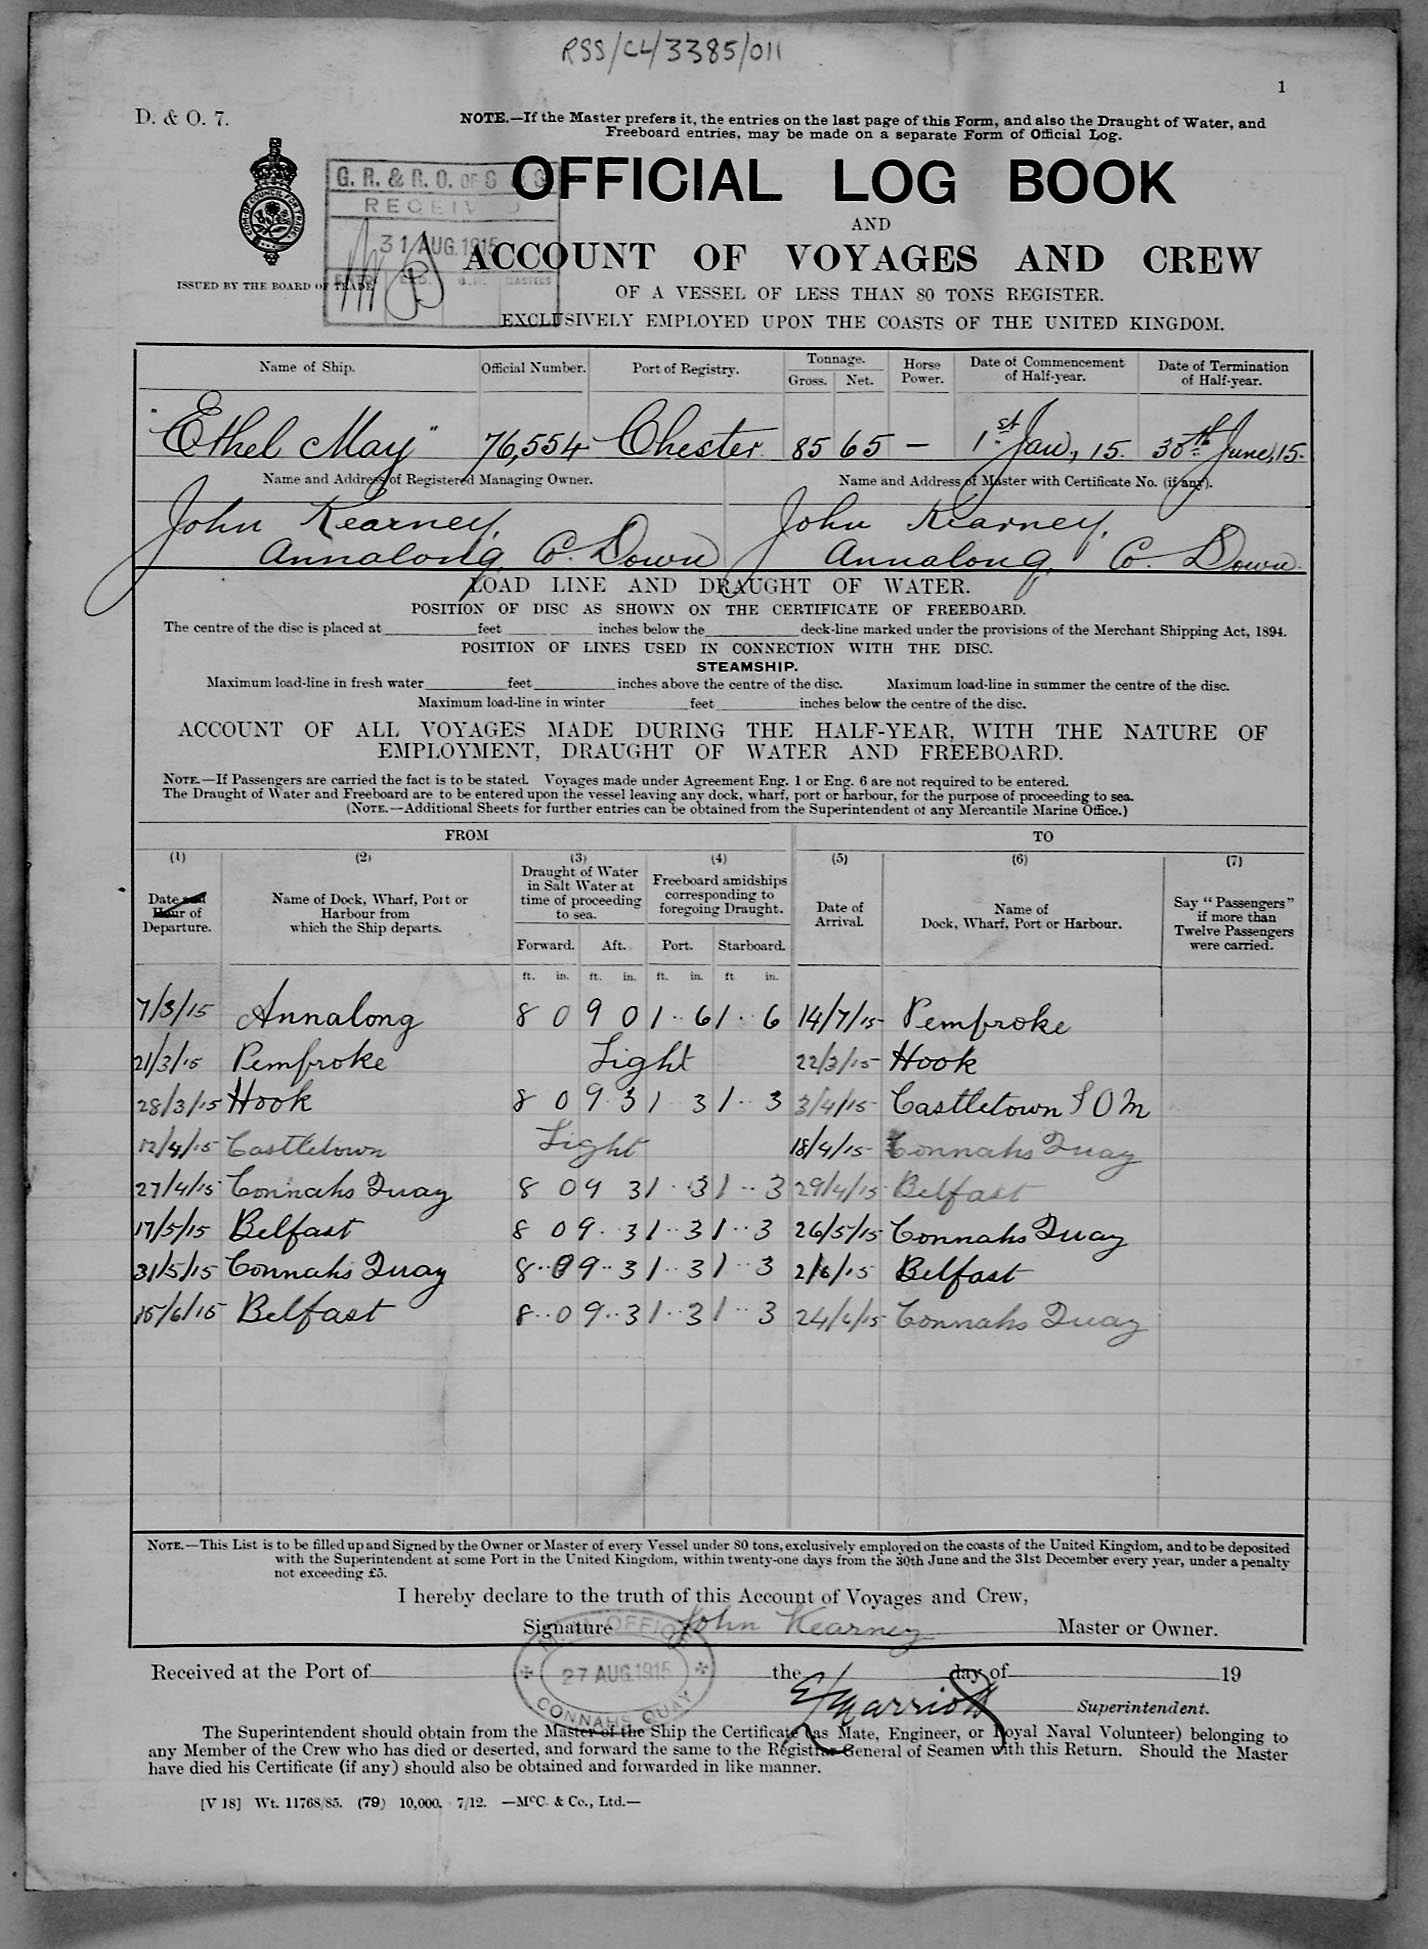 RSS/CL/3385/011
1
D. & O. 7.
NOTE.—If the Master prefers it, the entries on the last page of this Form, and also the Draught of Water, and
Freeboard entries, may be made on a separate Form of Official Log.
G. R. & R. O. OF S
RECEIV D
31 AUG. 1915
OFFICIAL LOG BOOK
AND
ACCOUNT OF VOYAGES AND CREW
ISSUED BY THE BOARD OF TRADE
OF A VESSEL OF LESS THAN 80 TONS REGISTER.
EXCLUSIVELY EMPLOYED UPON THE COASTS OF THE UNITED KINGDOM.
Name of Ship. Official Number. Port of Registry. Tonnage. Gross. Net. Horse Power. Date of Commencement of Half-year. Date of Termination of Half-year.
"Ethel May" 76,554 Chester 85 65 — 1st Jan, 15. 30th June, 15.
Name and Address of Registered Managing Owner. Name and Address of Master with Certificate No. (if any).
John Kearney, John Kearney,
Annalong, Co. Down Annalong, Co. Down.
LOAD LINE AND DRAUGHT OF WATER.
POSITION OF DISC AS SHOWN ON THE CERTIFICATE OF FREEBOARD.
The centre of the disc is placed at feet inches below the deck-line marked under the provisions of the Merchant Shipping Act, 1894.
POSITION OF LINES USED IN CONNECTION WITH THE DISC.
STEAMSHIP.
Maximum load-line in fresh water feet inches above the centre of the disc. Maximum load-line in summer the centre of the disc.
Maximum load-line in winter feet inches below the centre of the disc.
ACCOUNT OF ALL VOYAGES MADE DURING THE HALF-YEAR, WITH THE NATURE OF
EMPLOYMENT, DRAUGHT OF WATER AND FREEBOARD.
NOTE.—If Passengers are carried the fact is to be stated. Voyages made under Agreement Eng. 1 or Eng. 6 are not required to be entered.
The Draught of Water and Freeboard are to be entered upon the vessel leaving any dock, wharf, port or harbour, for the purpose of proceeding to sea.
(NOTE.—Additional Sheets for further entries can be obtained from the Superintendent of any Mercantile Marine Office.)
FROM TO
(1) (2) (3) (4) (5) (6) (7)
Date and Hour of Departure.
Name of Dock, Wharf, Port or Harbour from which the Ship departs.
Draught of Water in Salt Water at time of proceeding to sea.
Freeboard amidships corresponding to foregoing Draught.
Date of Arrival.
Name of Dock, Wharf, Port or Harbour.
Say "Passengers" if more than Twelve Passengers were carried.
Forward. Aft. Port. Starboard.
ft. in. ft. in. ft. in. ft in.
7/3/15 Annalong 8 0 9 0 1 .. 6 1 .. 6 14/7/15 Pembroke
21/3/15 Pembroke Light 22/3/15 Hook
28/3/15 Hook 8 0 9 3 1 3 1 .. 3 3/4/15 Castletown I O M
12/4/15 Castletown Light 18/4/15 Connahs Quay
27/4/15 Connahs Quay 8 0 9 3 1 .. 3 1 .. 3 29/4/15 Belfast
17/5/15 Belfast 8 0 9 .. 3 1 .. 3 1 .. 3 26/5/15 Connahs Quay
31/5/15 Connahs Quay 8 .. 0 9 .. 3 1 .. 3 1 .. 3 2/6/15 Belfast
15/6/15 Belfast 8 .. 0 9 .. 3 1 .. 3 1 .. 3 24/6/15 Connahs Quay
NOTE.—This List is to be filled up and Signed by the Owner or Master of every Vessel under 80 tons, exclusively employed on the coasts of the United Kingdom, and to be deposited
with the Superintendent at some Port in the United Kingdom, within twenty-one days from the 30th June and the 31st December every year, under a penalty
not exceeding £5.
I hereby declare to the truth of this Account of Voyages and Crew,
Signature John Kearney Master or Owner.
OFFICE
27 AUG. 1915
CONNAHS QUAY
Received at the Port of the day of 19
E Marriott Superintendent.
The Superintendent should obtain from the Master of the Ship the Certificate (as Mate, Engineer, or Royal Naval Volunteer) belonging to
any Member of the Crew who has died or deserted, and forward the same to the Registrar General of Seamen with this Return. Should the Master
have died his Certificate (if any) should also be obtained and forwarded in like manner.
[V 18] Wt. 11768/85. (79) 10,000. 7/12. —McC. & Co., Ltd.—